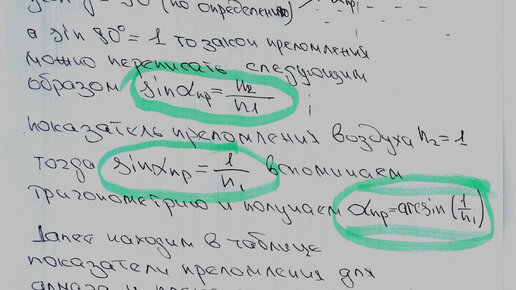 = 90° (по определению)
а sin 90° = 1 то закон преломления
можно переписать следующим
образом sinαпр = n₂/n₁
показатель преломления воздуха n₂=1
тогда sinαпр = 1/n₁ вспоминаем
тригонометрию и получаем αпр=arcsin(1/n₁)
Далее находим в таблице
показатели преломления для
алмаза и